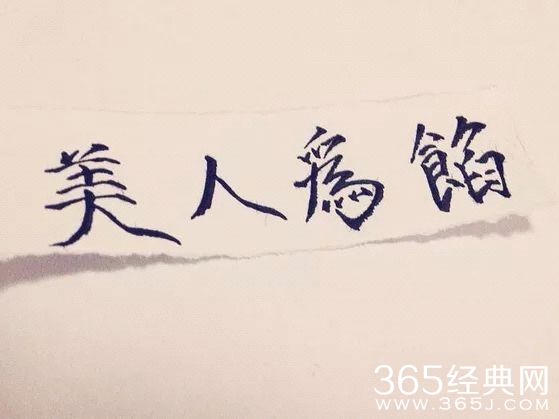 美人爲餡
365经典网
www.365J.com